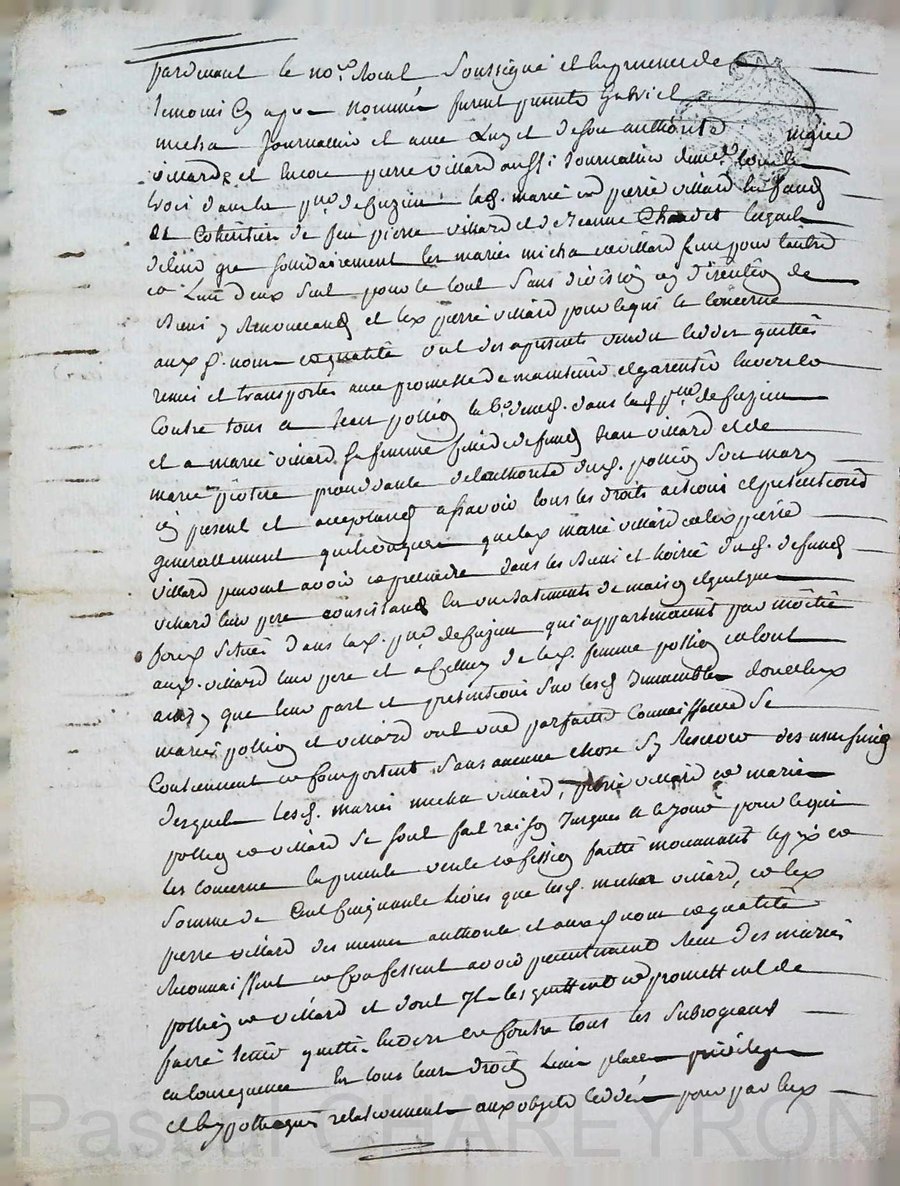 pardevant le no.re Royal soussigné et en presence de
temoins cy apres nommés furent presents Gabriel
micha Journallier et avec luy et de son authorité marie
villard et encore pierre villard aussi Journallier
trois dans la p.sse de
et cohéritiers de feu pierre villard et de Jeanne lesquels
de leur gré solidairement les mariés micha et villard l'un pour l'autre
et l'un d'eux seul pour le tout sans division ny discution de
biens y renonceant et led pierre villard pour ce qui le concerne
aux d. noms et qualités ont des a present vendu cedé quitté
remis et transportés avec promesse de maintenir et garentir envers et
contre tous a Jean dans lad p.sse de
et a marie villard sa femme fille de defunt Jean villard et de
marie procedante de l'authorité dud. son mary
icy present et acceptant assavoir tous les droits actions et pretentions
generallement quelconques que lad marie villard et led pierre
villard peuvent avoir et pretendre dans les biens et hoirie dud. defunt
villard leur pere consistant en un batiments de maison et quelque
fonds situés dans lad. p.sse de qui appartiennent par moitié
aud. villard leur pere et a celluy de lad. femme et tout
ainsy que leur part et pretentions sur lesd. Immeubles dont lesd
mariés et villard ont une parfaitte connaissance se
contiennent et comportent sans aucune chose s'y reserver des usufruits
desquels lesd. mariés micha villard, pierre villard et mariés
et villard se sont fait raison Jusques a ce jour pour ce qui
les concerne la presente vente et cession faitte moyennant le prix et
somme de Cent Cinquante livres que lesd. micha villard, et led
pierre villard des memes authorité et aux d. noms et qualités
Reconnaissent et confessent avoir presentement Receu des mariés
et villard et dont Ils les quittent et promettent de
faire tenir quitte envers et contre tous les subrogeant
en consequence en tous leurs droits lieux places privileges
et hypotheques relativement aux objets cedés pour par lesd
Pascal CHAREYRON